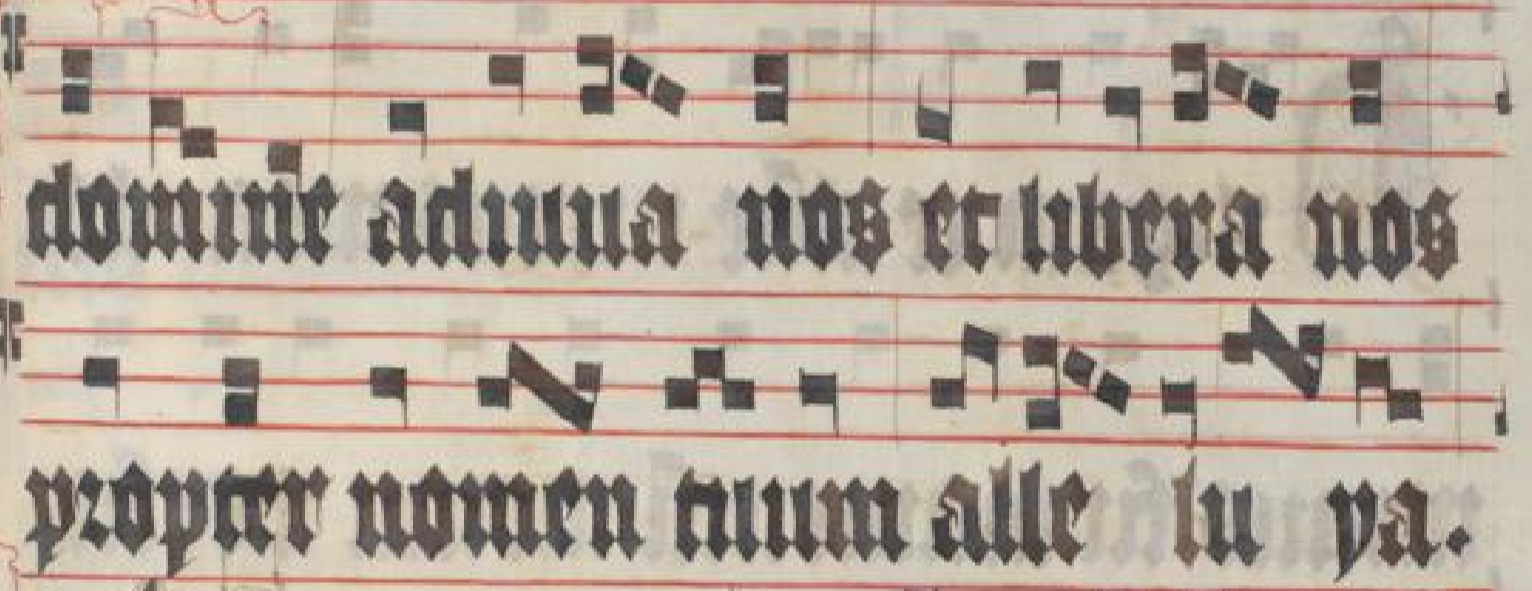 domine adiuua nos et libera nos
propter nomen tuum alle lu ya.